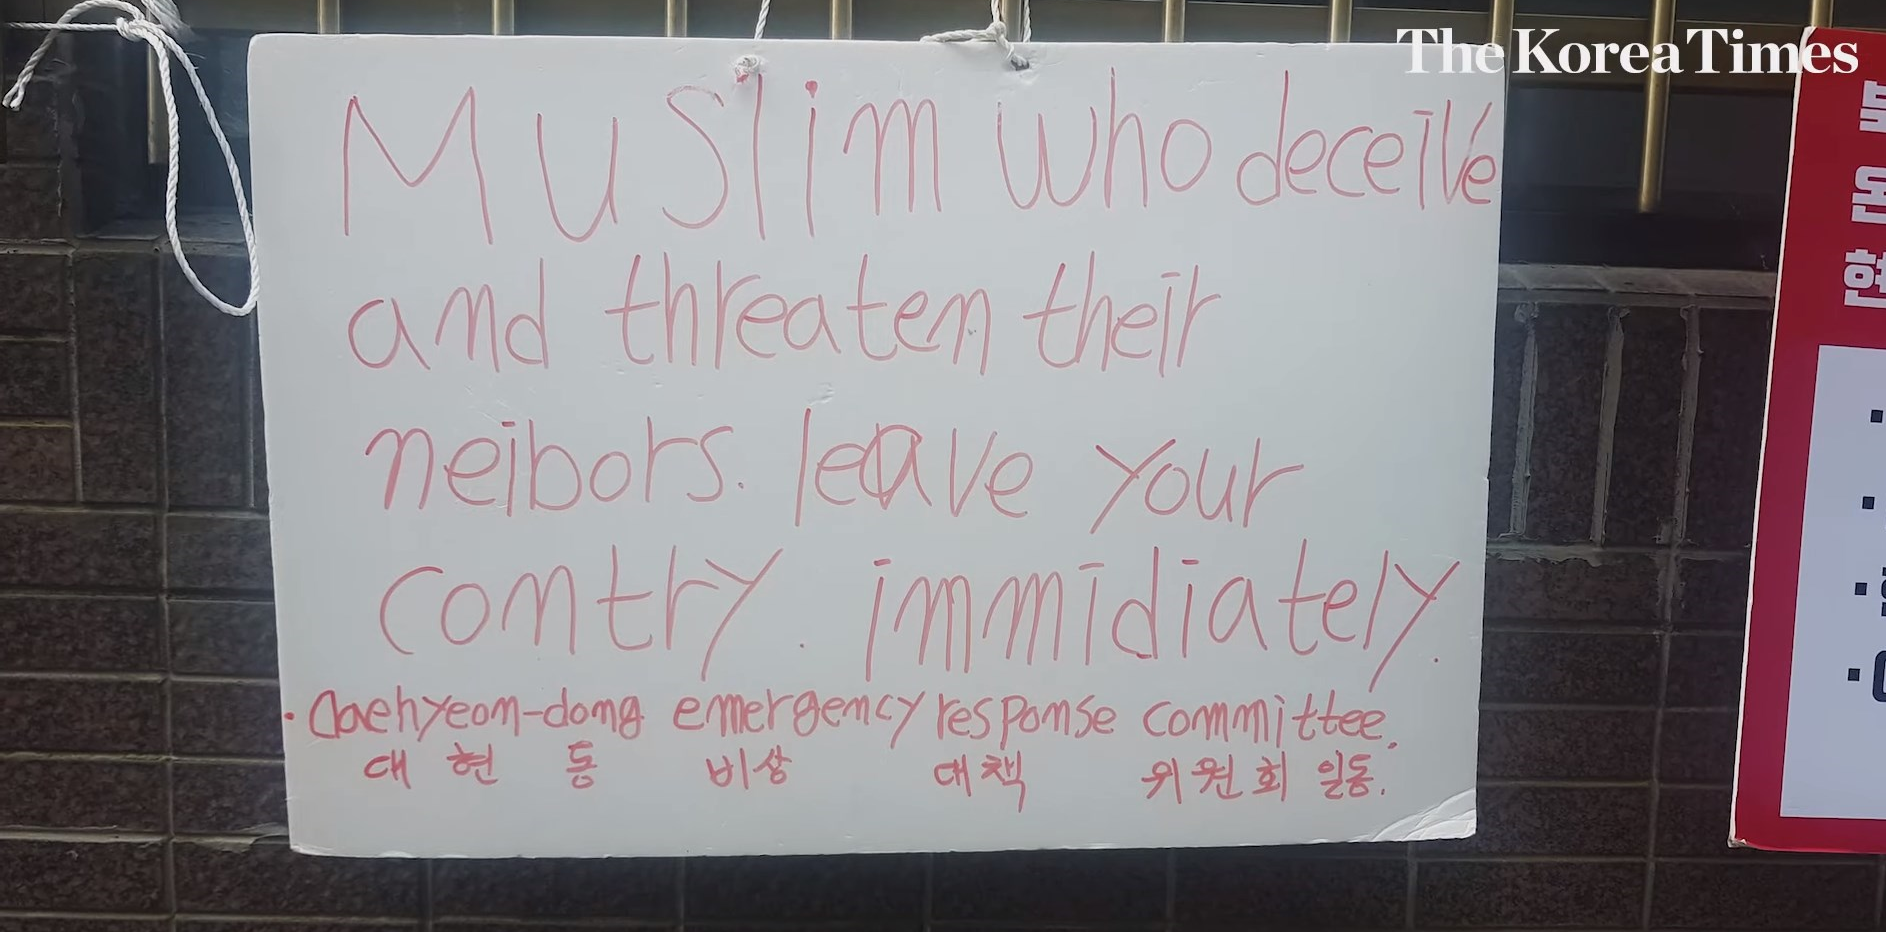 The Korea Times
Muslim who deceive
and threaten their
neibors. leave your
comtry. immidiately.
· Daehyeon-dong emergency response committee.
대 현 동 비상 대책 위원회 일동.